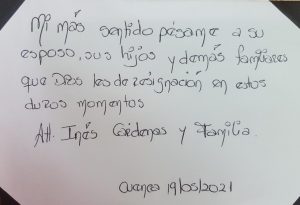 Mi más sentido pésame a su
esposo, sus hijos y demás familiares
que Dios les de resignación en estos
duros momentos
Att. Inés Cárdenas y Familia.
Cuenca 19/05/2021